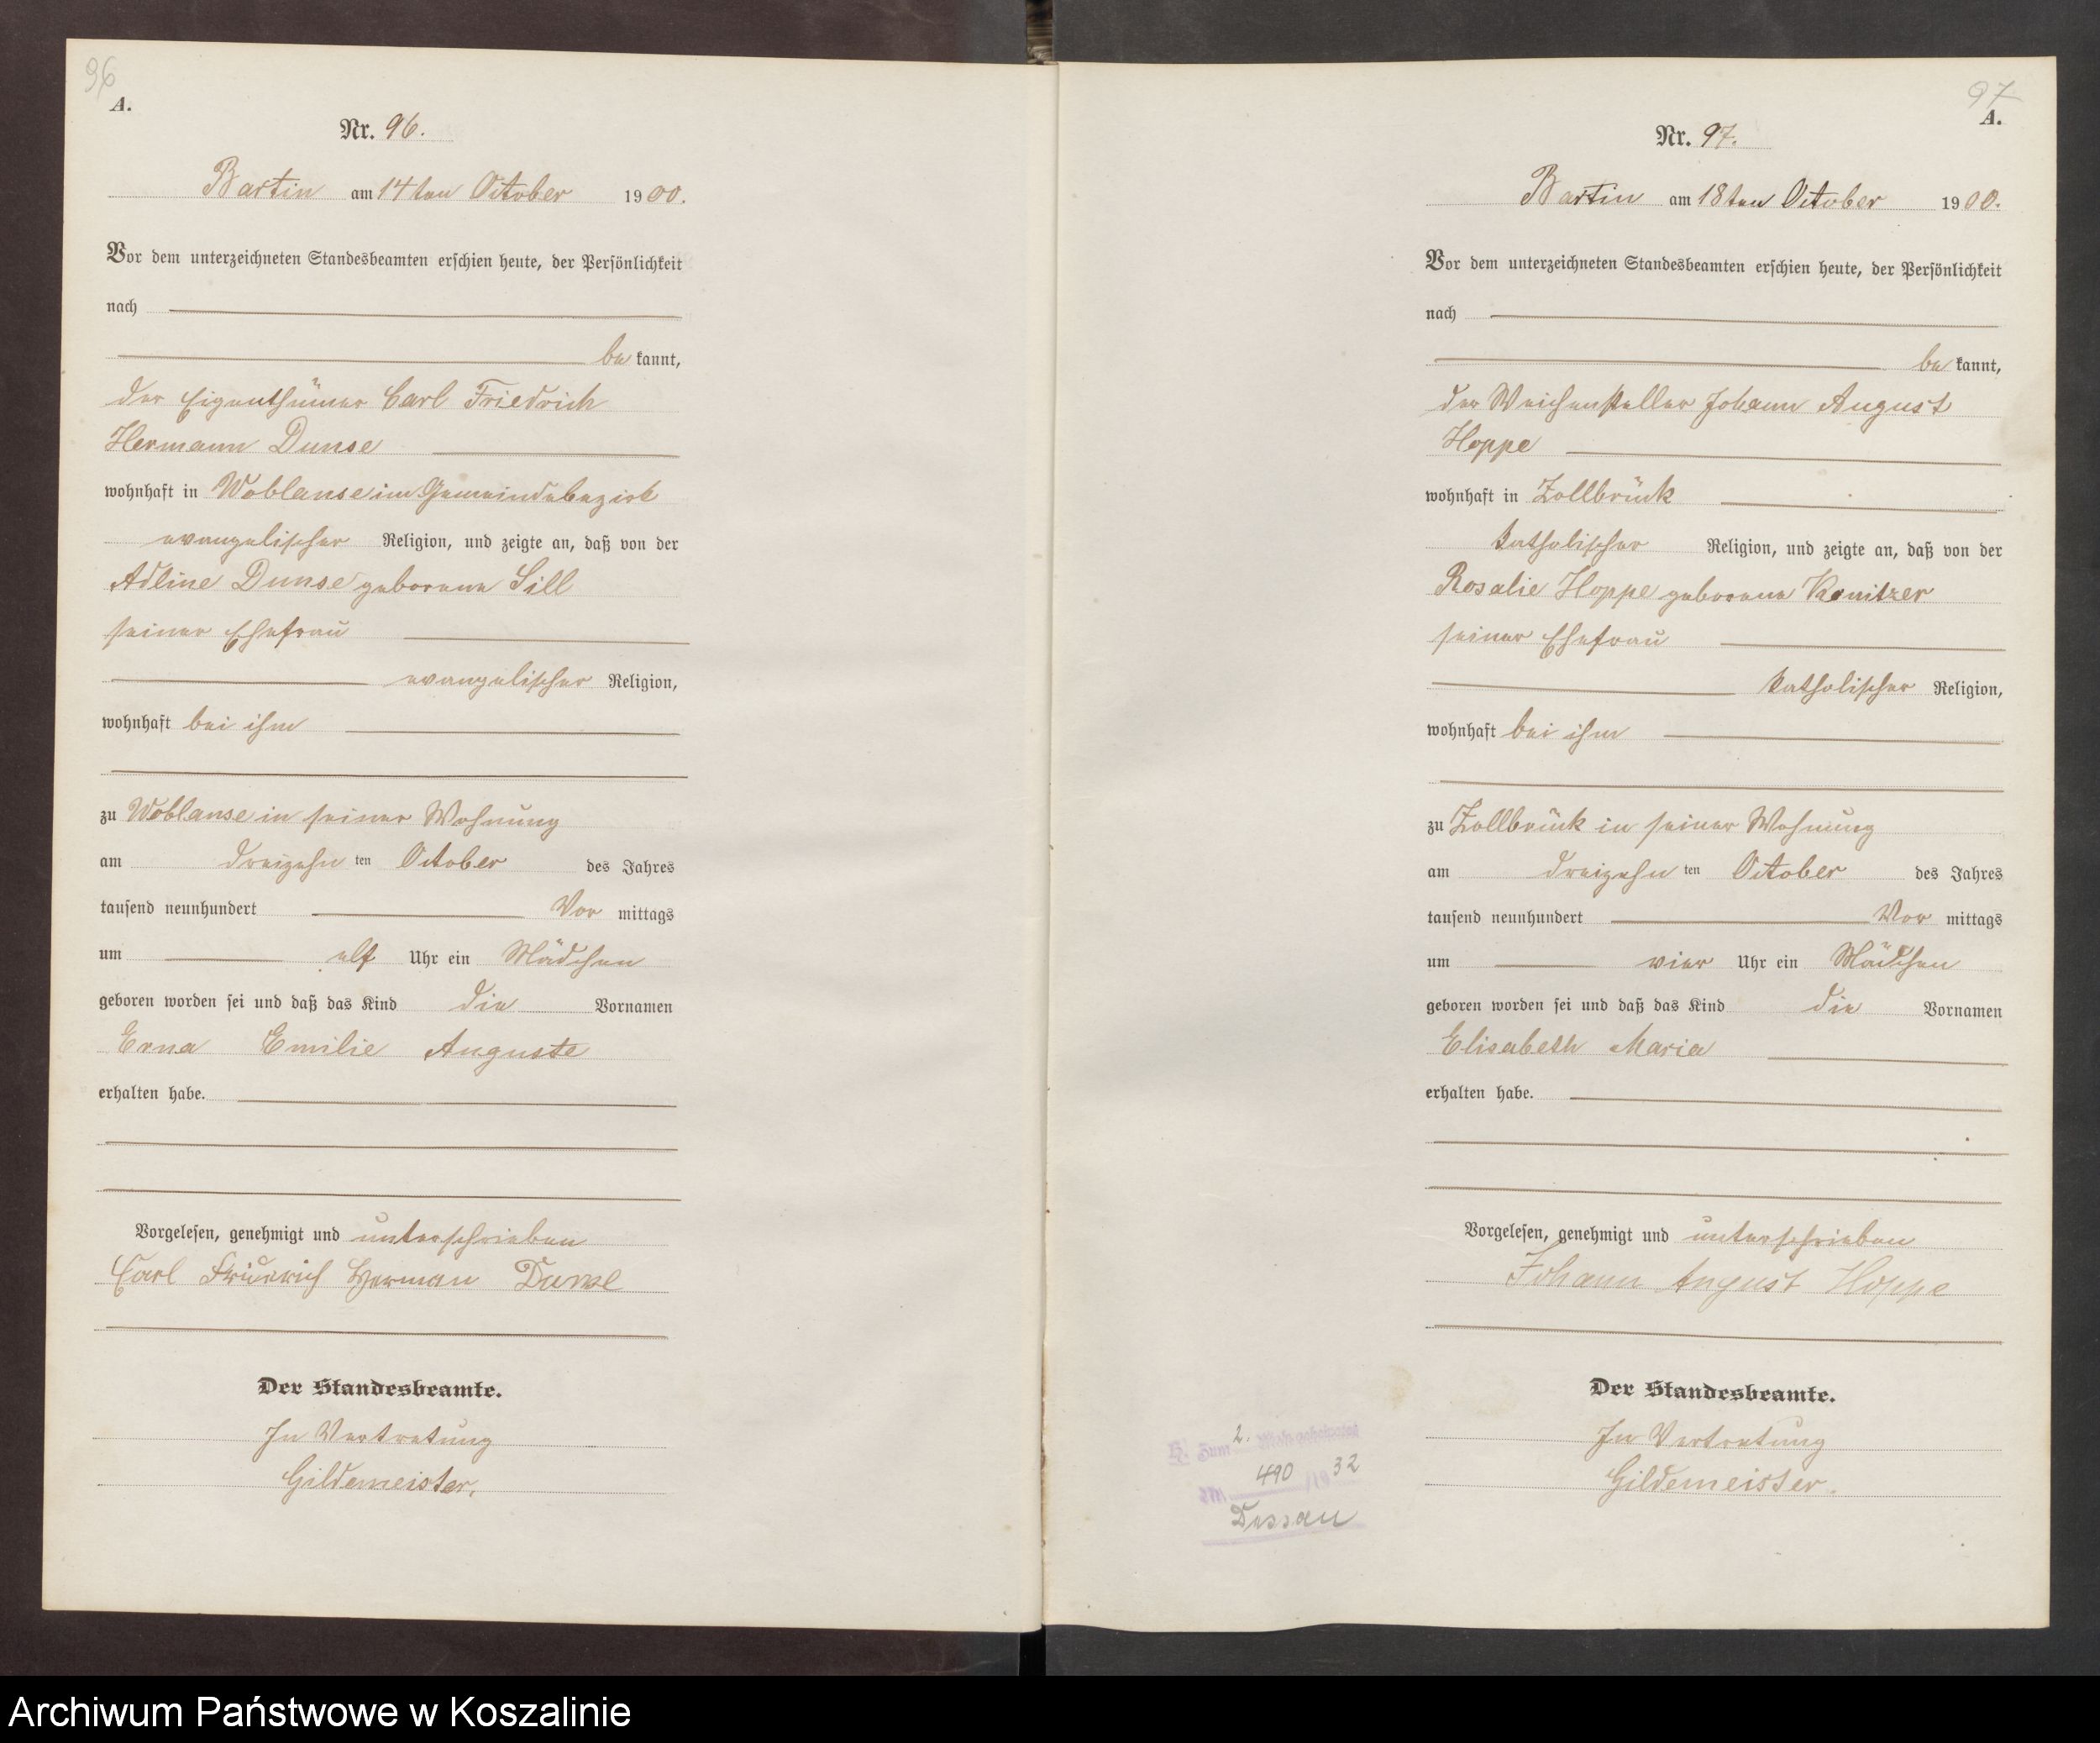 96
A.
Nr. 96.
Bartin am 14ten October 1900.
Vor dem unterzeichneten Standesbeamten erschien heute, der Persönlichkeit
nach
be kannt,
der Eigenthümer Carl Friedrich
Hermann Dunse
wohnhaft in Woblanse im Gemeindebezirk
evangelischer Religion, und zeigte an, daß von der
Adline Dunse geborene Sill
seiner Ehefrau
evangelischer Religion,
wohnhaft bei ihm
zu Woblanse in seiner Wohnung
am dreizehn ten October des Jahres
tausend neunhundert Vor mittags
um elf Uhr ein Mädchen
geboren worden sei und daß das Kind die Vornamen
Erna Emilie Auguste
erhalten habe.
Vorgelesen, genehmigt und unterschrieben
Carl Friedrich Herman Dunse
Der Standesbeamte.
In Vertretung
Gildemeister.
97
A.
Nr. 97.
Bartin am 18ten October 1900.
Vor dem unterzeichneten Standesbeamten erschien heute, der Persönlichkeit
nach
be kannt,
der Weichensteller Johann August
Hoppe
wohnhaft in Zollbrück
katholischer Religion, und zeigte an, daß von der
Rosalie Hoppe geborene Konitzer
seiner Ehefrau
katholischer Religion,
wohnhaft bei ihm
zu Zollbrück in seiner Wohnung
am dreizehn ten October des Jahres
tausend neunhundert Vor mittags
um vier Uhr ein Mädchen
geboren worden sei und daß das Kind die Vornamen
Elisabeth Maria
erhalten habe.
Vorgelesen, genehmigt und unterschrieben
Johann August Hoppe
Der Standesbeamte.
In Vertretung
Gildemeister.
H. Zum 2.
490 /19 32
Dessau
Archiwum Państwowe w Koszalinie